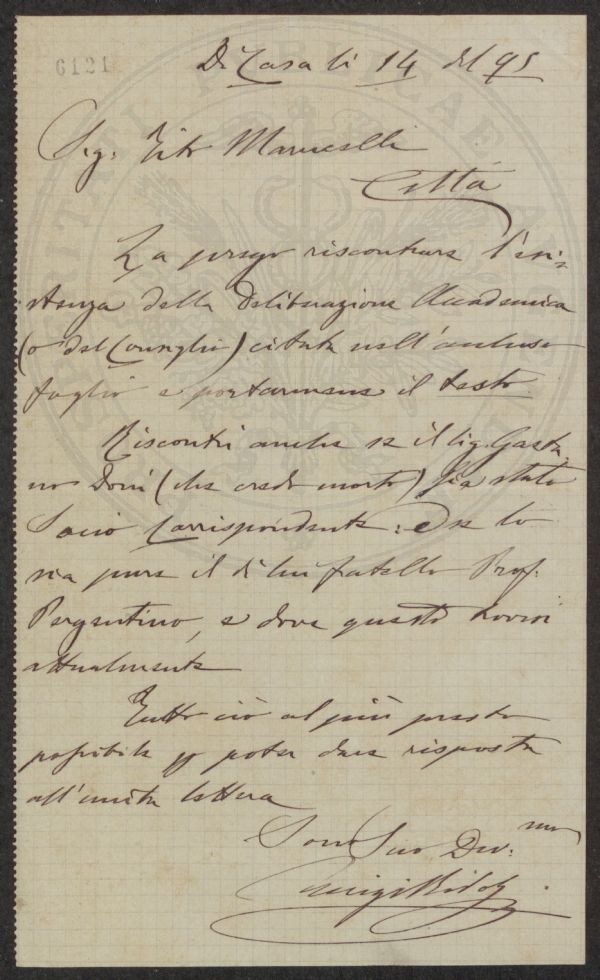 6121
Di Casa li 14 del 95
Sig: Tito Marucelli
Città
La prego riscontrare l'esi=
stenza della Deliberazione Accademica
(o del Consiglio) citata nell'accluso
foglio e portarmene il testo
Riscontri anche se il Sig. Gaeta
no Doni (che credo morto) sia stato
Socio Corrispondente: e se lo
sia pure il di lui fratello Prof.
Pergentino, e dove questo trovisi
attualmente
Tutto ciò al più presto
possibile p poter dare risposta
all'unita lettera
Sono Suo Dev.mo
Luigi Ridolfi